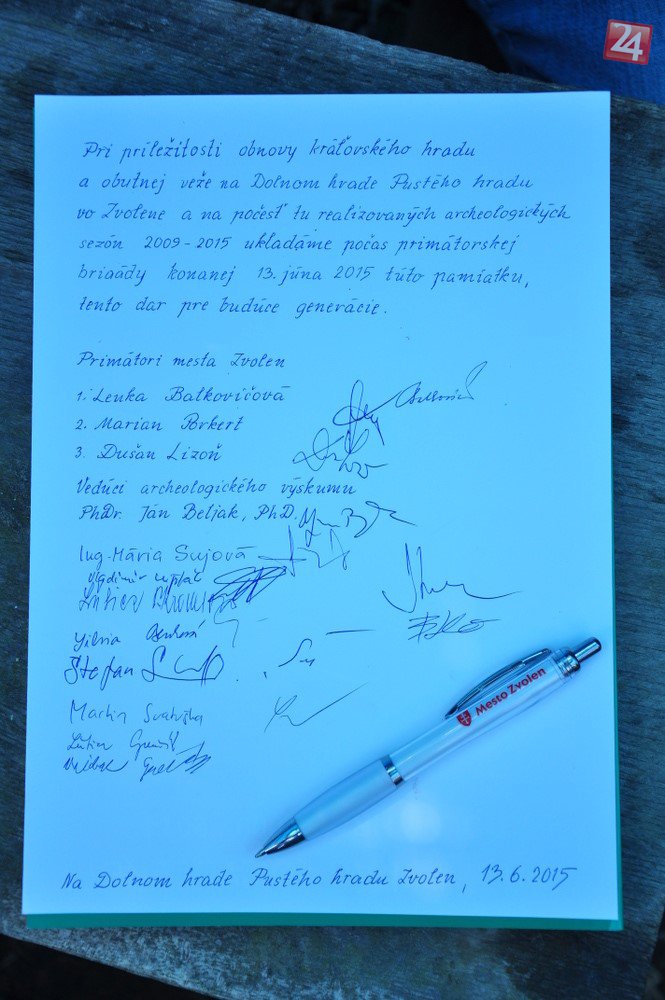 24
Pri príležitosti obnovy kráľovského hradu
a obytnej veže na Dolnom hrade Pustého hradu
vo Zvolene a na počesť tu realizovaných archeologických
sezón 2009-2015 ukladáme počas primátorskej
brigády konanej 13. júna 2015 túto pamiatku,
tento dar pre budúce generácie.
Primátori mesta Zvolen
1. Lenka Balkovičová
2. Marian
3. Dušan Lizoň
Vedúci archeologického výskumu
PhDr. Ján Beljak, PhD.
Ing. Mária Sujová
Vladimír
Štefan
Martin
Mesto Zvolen
Na Dolnom hrade Pustého hradu Zvolen, 13.6.2015